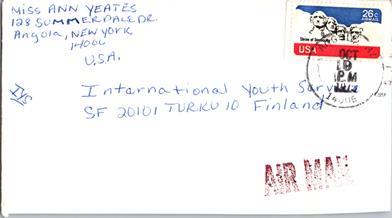 Miss ANN YEATES
128 SUMMERDALE DR.
Angola, NEW YORK
14006
U.S.A.
26c
Shrine of Democracy
USA
OCT
PM
14006
IYS
International Youth Service
SF 20101 TURKU 10 Finland
AIR MAIL